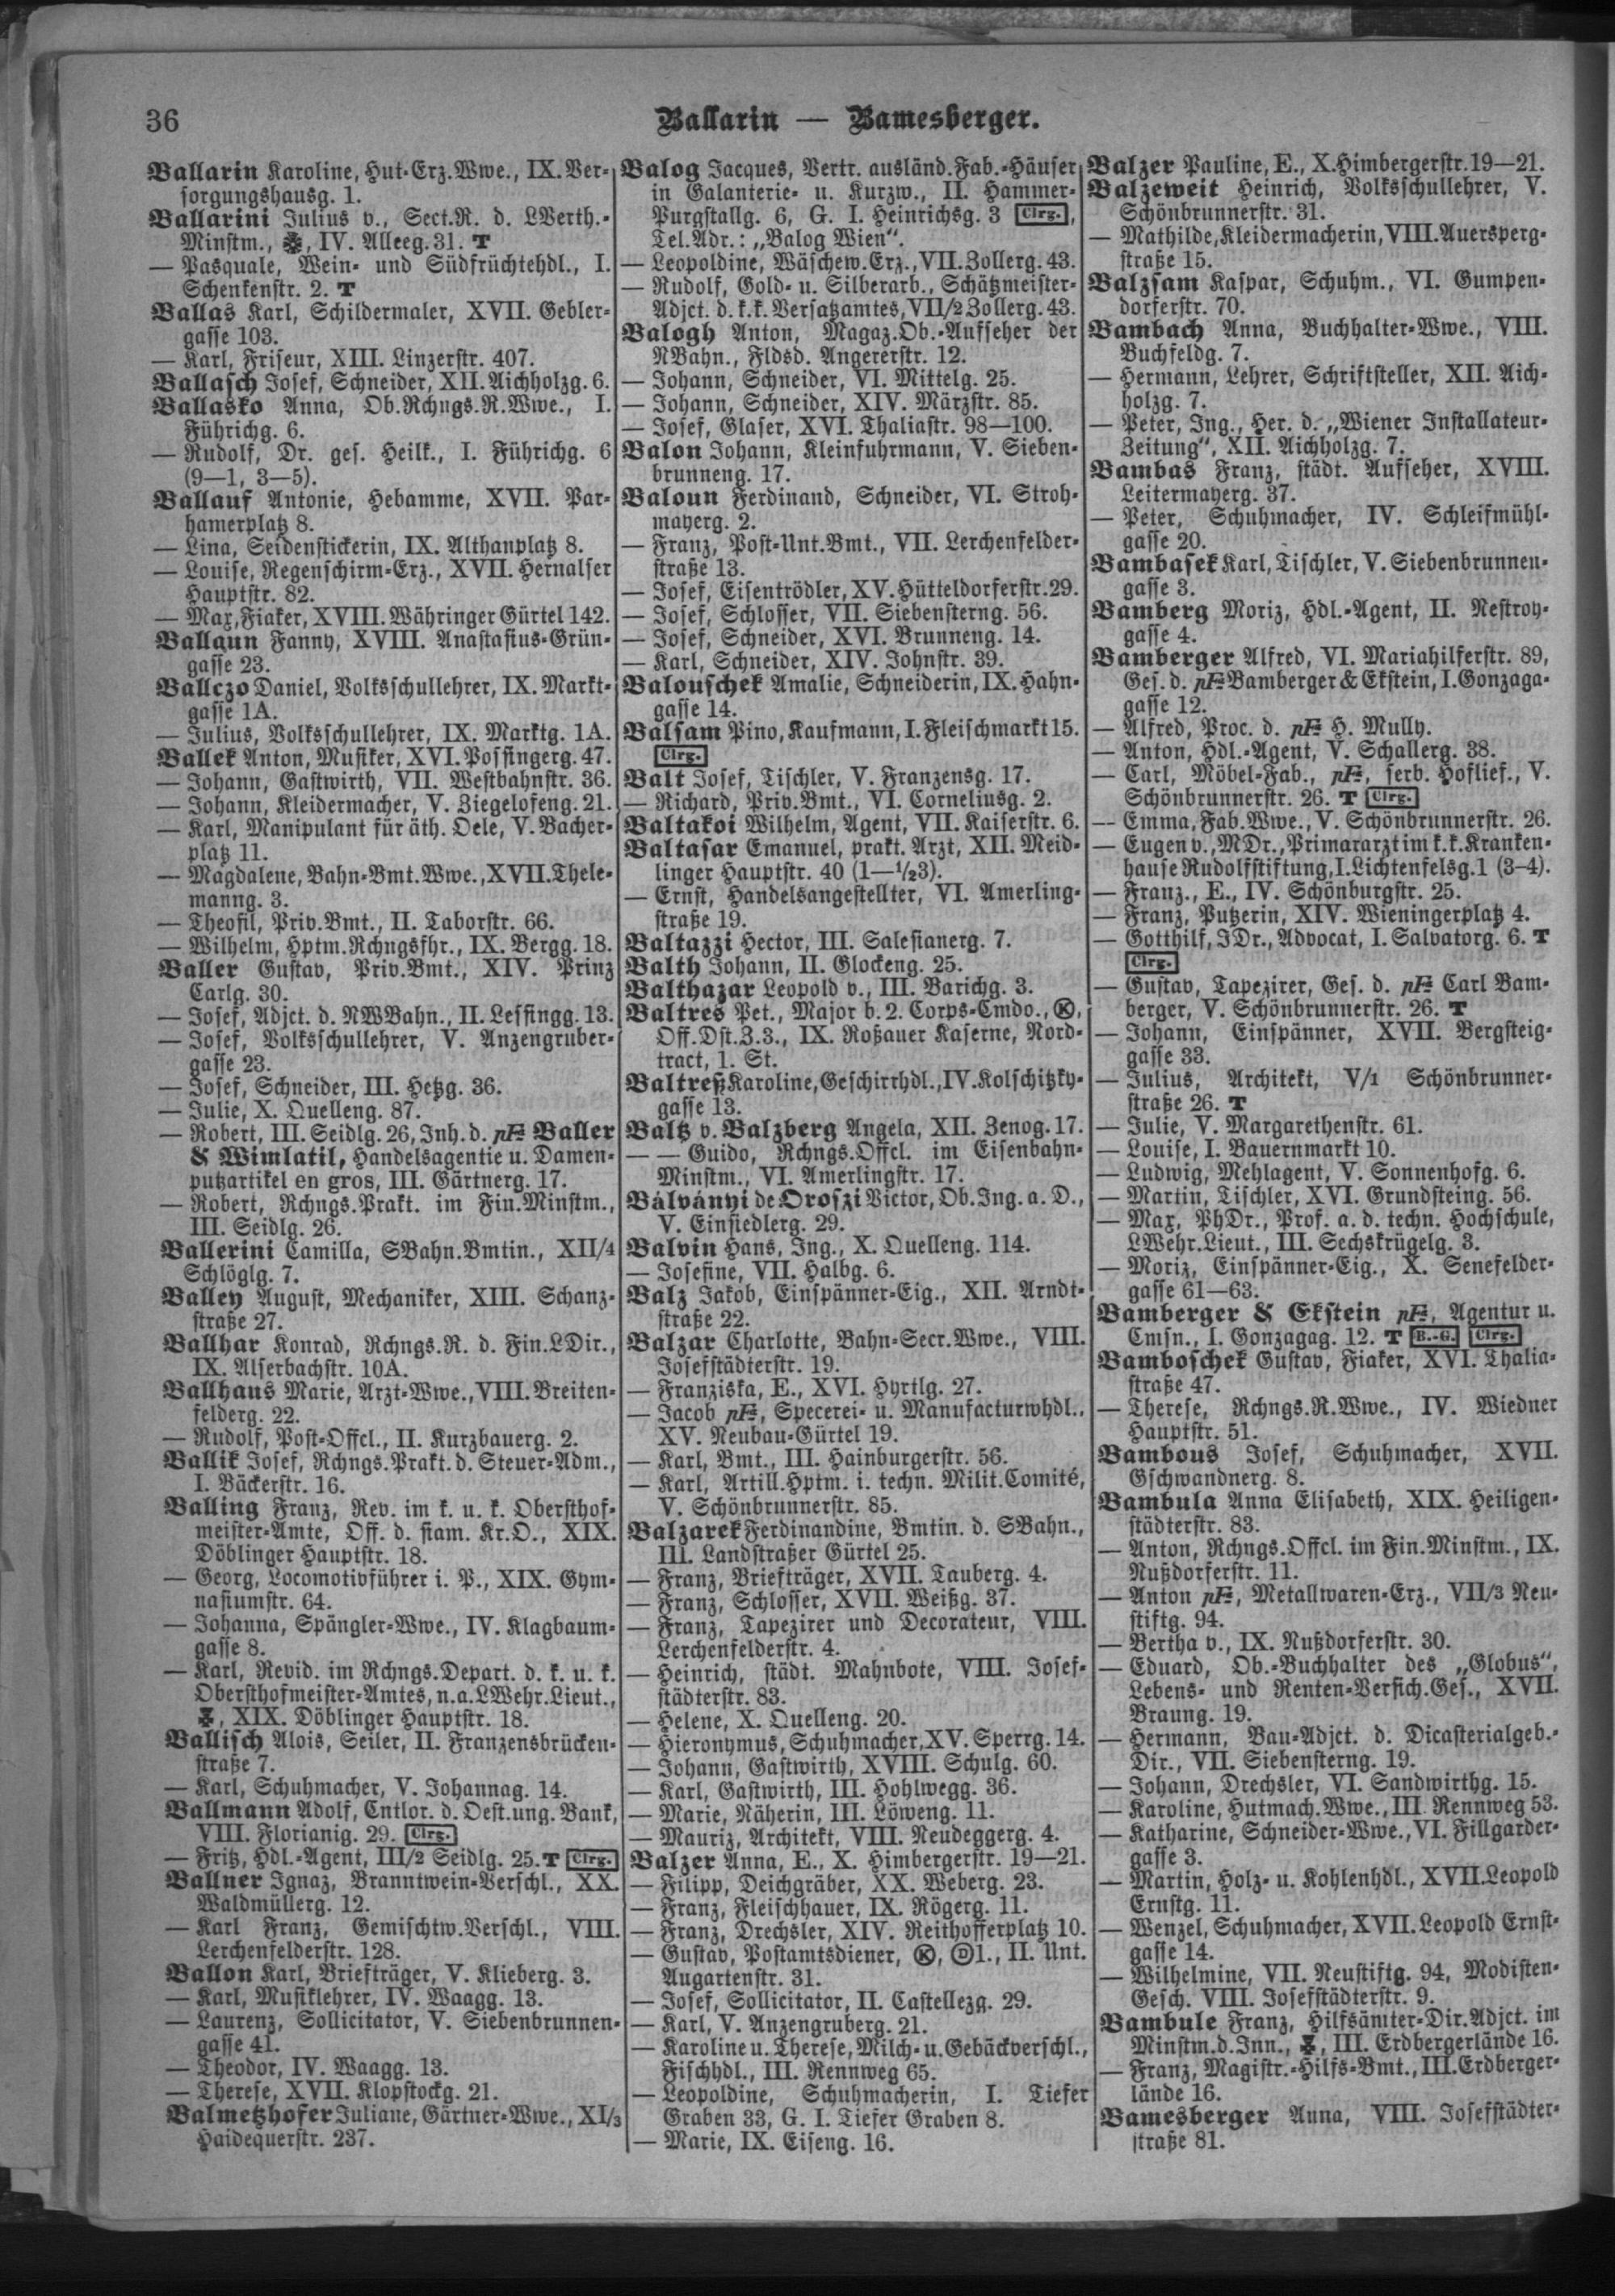 36
Ballarin — Bamesberger.
Ballarin Karoline, Hut-Erz.Wwe., IX. Ver-
sorgungshausg. 1.
Ballarini Julius v., Sect.R. d. LVerth.-
Minstm., IV. Alleeg. 31. T
— Pasquale, Wein- und Südfrüchtehdl., I.
Schenkenstr. 2. T
Ballas Karl, Schildermaler, XVII. Gebler-
gasse 103.
— Karl, Friseur, XIII. Linzerstr. 407.
Ballasch Josef, Schneider, XII. Aichholzg. 6.
Ballasko Anna, Ob.Rchngs.R.Wwe., I.
Führichg. 6.
— Rudolf, Dr. ges. Heilk., I. Führichg. 6
(9—1, 3—5).
Ballauf Antonie, Hebamme, XVII. Par-
hamerplatz 8.
— Lina, Seidenstickerin, IX. Althanplatz 8.
— Louise, Regenschirm-Erz., XVII. Hernalser
Hauptstr. 82.
— Max, Fiaker, XVIII. Währinger Gürtel 142.
Ballaun Fanny, XVIII. Anastasius-Grün-
gasse 23.
Ballczo Daniel, Volksschullehrer, IX. Markt-
gasse 1A.
— Julius, Volksschullehrer, IX. Marktg. 1A.
Ballek Anton, Musiker, XVI. Possingerg. 47.
— Johann, Gastwirth, VII. Westbahnstr. 36.
— Johann, Kleidermacher, V. Ziegelofeng. 21.
— Karl, Manipulant für äth. Oele, V. Bacher-
platz 11.
— Magdalene, Bahn-Bmt.Wwe., XVII. Thele-
manng. 3.
— Theofil, Priv.Bmt., II. Taborstr. 66.
— Wilhelm, Hptm.Rchngsfhr., IX. Bergg. 18.
Baller Gustav, Priv.Bmt., XIV. Prinz
Carlg. 30.
— Josef, Adjct. d. NWBahn., II. Lessingg. 13.
— Josef, Volksschullehrer, V. Anzengruber-
gasse 23.
— Josef, Schneider, III. Hetzg. 36.
— Julie, X. Quelleng. 87.
— Robert, III. Seidlg. 26, Inh. d. pF Baller
& Wimlatil, Handelsagentie u. Damen-
putzartikel en gros, III. Gärtnerg. 17.
— Robert, Rchngs.Prakt. im Fin.Minstm.,
III. Seidlg. 26.
Ballerini Camilla, SBahn.Bmtin., XII/4
Schlöglg. 7.
Balley August, Mechaniker, XIII. Schanz-
straße 27.
Ballhar Konrad, Rchngs.R. d. Fin.LDir.,
IX. Alserbachstr. 10A.
Ballhaus Marie, Arzt-Wwe., VIII. Breiten-
felderg. 22.
— Rudolf, Post-Offcl., II. Kurzbauerg. 2.
Ballik Josef, Rchngs.Prakt. d. Steuer-Adm.,
I. Bäckerstr. 16.
Balling Franz, Rev. im k. u. k. Obersthof-
meister-Amte, Off. d. siam. Kr.O., XIX.
Döblinger Hauptstr. 18.
— Georg, Locomotivführer i. P., XIX. Gym-
nasiumstr. 64.
— Johanna, Spängler-Wwe., IV. Klagbaum-
gasse 8.
— Karl, Revid. im Rchngs.Depart. d. k. u. k.
Obersthofmeister-Amtes, n.a.LWehr.Lieut.,
XIX. Döblinger Hauptstr. 18.
Ballisch Alois, Seiler, II. Franzensbrücken-
straße 7.
— Karl, Schuhmacher, V. Johannag. 14.
Ballmann Adolf, Cntlor. d. Oest.ung. Bank,
VIII. Florianig. 29. Clrg.
— Fritz, Hdl.-Agent, III/2 Seidlg. 25. T Clrg.
Ballner Ignaz, Branntwein-Verschl., XX.
Waldmüllerg. 12.
— Karl Franz, Gemischtw.Verschl., VIII.
Lerchenfelderstr. 128.
Ballon Karl, Briefträger, V. Klieberg. 3.
— Karl, Musiklehrer, IV. Waagg. 13.
— Laurenz, Sollicitator, V. Siebenbrunnen-
gasse 41.
— Theodor, IV. Waagg. 13.
— Therese, XVII. Klopstockg. 21.
Balmetzhofer Juliane, Gärtner-Wwe., XI/3
Haidequerstr. 237.
Balog Jacques, Vertr. ausländ. Fab.-Häuser
in Galanterie- u. Kurzw., II. Hammer-
Purgstallg. 6, G. I. Heinrichsg. 3 Clrg.,
Tel.Adr.: „Balog Wien“.
— Leopoldine, Wäschew.Erz., VII. Zollerg. 43.
— Rudolf, Gold- u. Silberarb., Schätzmeister-
Adjct. d. k.k. Versatzamtes, VII/2 Zollerg. 43.
Balogh Anton, Magaz.Ob.-Aufseher der
NBahn., Fldsd. Angererstr. 12.
— Johann, Schneider, VI. Mittelg. 25.
— Johann, Schneider, XIV. Märzstr. 85.
— Josef, Glaser, XVI. Thaliastr. 98—100.
Balon Johann, Kleinfuhrmann, V. Sieben-
brunneng. 17.
Baloun Ferdinand, Schneider, VI. Stroh-
mayerg. 2.
— Franz, Post-Unt.Bmt., VII. Lerchenfelder-
straße 13.
— Josef, Eisentrödler, XV. Hütteldorferstr. 29.
— Josef, Schlosser, VII. Siebensterng. 56.
— Josef, Schneider, XVI. Brunneng. 14.
— Karl, Schneider, XIV. Johnstr. 39.
Balouschek Amalie, Schneiderin, IX. Hahn-
gasse 14.
Balsam Pino, Kaufmann, I. Fleischmarkt 15.
Clrg.
Balt Josef, Tischler, V. Franzensg. 17.
— Richard, Priv.Bmt., VI. Corneliusg. 2.
Baltakoi Wilhelm, Agent, VII. Kaiserstr. 6.
Baltasar Emanuel, prakt. Arzt, XII. Meid-
linger Hauptstr. 40 (1—½3).
— Ernst, Handelsangestellter, VI. Amerling-
straße 19.
Baltazzi Hector, III. Salesianerg. 7.
Balth Johann, II. Glockeng. 25.
Balthazar Leopold v., III. Barichg. 3.
Baltres Pet., Major b. 2. Corps-Cmdo., Ⓚ,
Off.Dst.Z.3., IX. Roßauer Kaserne, Nord-
tract, 1. St.
Baltreß Karoline, Geschirrhdl., IV. Kolschitzky-
gasse 13.
Baltz v. Balzberg Angela, XII. Zenog. 17.
— — Guido, Rchngs.Offcl. im Eisenbahn-
Minstm., VI. Amerlingstr. 17.
Bálványi de Oroszi Victor, Ob.Ing. a. D.,
V. Einsiedlerg. 29.
Balvin Hans, Ing., X. Quelleng. 114.
— Josefine, VII. Halbg. 6.
Balz Jakob, Einspänner-Eig., XII. Arndt-
straße 22.
Balzar Charlotte, Bahn-Secr.Wwe., VIII.
Josefstädterstr. 19.
— Franziska, E., XVI. Hyrtlg. 27.
— Jacob pF, Specerei- u. Manufacturwhdl.,
XV. Neubau-Gürtel 19.
— Karl, Bmt., III. Hainburgerstr. 56.
— Karl, Artill.Hptm. i. techn. Milit.Comité,
V. Schönbrunnerstr. 85.
Balzarek Ferdinandine, Bmtin. d. SBahn.,
III. Landstraßer Gürtel 25.
— Franz, Briefträger, XVII. Tauberg. 4.
— Franz, Schlosser, XVII. Weißg. 37.
— Franz, Tapezirer und Decorateur, VIII.
Lerchenfelderstr. 4.
— Heinrich, städt. Mahnbote, VIII. Josef-
städterstr. 83.
— Helene, X. Quelleng. 20.
— Hieronymus, Schuhmacher, XV. Sperrg. 14.
— Johann, Gastwirth, XVIII. Schulg. 60.
— Karl, Gastwirth, III. Hohlwegg. 36.
— Marie, Näherin, III. Löweng. 11.
— Mauriz, Architekt, VIII. Neudeggerg. 4.
Balzer Anna, E., X. Himbergerstr. 19—21.
— Filipp, Deichgräber, XX. Weberg. 23.
— Franz, Fleischhauer, IX. Rögerg. 11.
— Franz, Drechsler, XIV. Reithofferplatz 10.
— Gustav, Postamtsdiener, Ⓚ, Ⓓ1., II. Unt.
Augartenstr. 31.
— Josef, Sollicitator, II. Castellezg. 29.
— Karl, V. Anzengruberg. 21.
— Karoline u. Therese, Milch- u. Gebäckverschl.,
Fischhdl., III. Rennweg 65.
— Leopoldine, Schuhmacherin, I. Tiefer
Graben 33, G. I. Tiefer Graben 8.
— Marie, IX. Eiseng. 16.
Balzer Pauline, E., X. Himbergerstr. 19—21.
Balzeweit Heinrich, Volksschullehrer, V.
Schönbrunnerstr. 31.
— Mathilde, Kleidermacherin, VIII. Auersperg-
straße 15.
Balzsam Kaspar, Schuhm., VI. Gumpen-
dorferstr. 70.
Bambach Anna, Buchhalter-Wwe., VIII.
Buchfeldg. 7.
— Hermann, Lehrer, Schriftsteller, XII. Aich-
holzg. 7.
— Peter, Ing., Her. d. „Wiener Installateur-
Zeitung“, XII. Aichholzg. 7.
Bambas Franz, städt. Aufseher, XVIII.
Leitermayerg. 37.
— Peter, Schuhmacher, IV. Schleifmühl-
gasse 20.
Bambasek Karl, Tischler, V. Siebenbrunnen-
gasse 3.
Bamberg Moriz, Hdl.-Agent, II. Nestroy-
gasse 4.
Bamberger Alfred, VI. Mariahilferstr. 89,
Ges. d. pF Bamberger & Ekstein, I. Gonzaga-
gasse 12.
— Alfred, Proc. d. pF H. Mully.
— Anton, Hdl.-Agent, V. Schallerg. 38.
— Carl, Möbel-Fab., pF, serb. Hoflief., V.
Schönbrunnerstr. 26. T Clrg.
— Emma, Fab.Wwe., V. Schönbrunnerstr. 26.
— Eugen v., MDr., Primararzt im k. k. Kranken-
hause Rudolfstiftung, I. Lichtenfelsg. 1 (3–4).
— Franz., E., IV. Schönburgstr. 25.
— Franz, Putzerin, XIV. Wieningerplatz 4.
— Gotthilf, JDr., Advocat, I. Salvatorg. 6. T
Clrg.
— Gustav, Tapezirer, Ges. d. pF Carl Bam-
berger, V. Schönbrunnerstr. 26. T
— Johann, Einspänner, XVII. Bergsteig-
gasse 33.
— Julius, Architekt, V/1 Schönbrunner-
straße 26. T
— Julie, V. Margarethenstr. 61.
— Louise, I. Bauernmarkt 10.
— Ludwig, Mehlagent, V. Sonnenhofg. 6.
— Martin, Tischler, XVI. Grundsteing. 56.
— Max, PhDr., Prof. a. d. techn. Hochschule,
LWehr.Lieut., III. Sechskrügelg. 3.
— Moriz, Einspänner-Eig., X. Senefelder-
gasse 61—63.
Bamberger & Ekstein pF, Agentur u.
Cmsn., I. Gonzagag. 12. T B.-G. Clrg.
Bamboschek Gustav, Fiaker, XVI. Thalia-
straße 47.
— Therese, Rchngs.R.Wwe., IV. Wiedner
Hauptstr. 51.
Bambous Josef, Schuhmacher, XVII.
Gschwandnerg. 8.
Bambula Anna Elisabeth, XIX. Heiligen-
städterstr. 83.
— Anton, Rchngs.Offcl. im Fin.Minstm., IX.
Nußdorferstr. 11.
— Anton pF, Metallwaren-Erz., VII/3 Neu-
stiftg. 94.
— Bertha v., IX. Nußdorferstr. 30.
— Eduard, Ob.-Buchhalter des „Globus“,
Lebens- und Renten-Versich.Ges., XVII.
Braung. 19.
— Hermann, Bau-Adjct. d. Dicasterialgeb.-
Dir., VII. Siebensterng. 19.
— Johann, Drechsler, VI. Sandwirthg. 15.
— Karoline, Hutmach.Wwe., III. Rennweg 53.
— Katharine, Schneider-Wwe., VI. Fillgarder-
gasse 3.
— Martin, Holz- u. Kohlenhdl., XVII. Leopold
Ernstg. 11.
— Wenzel, Schuhmacher, XVII. Leopold Ernst-
gasse 14.
— Wilhelmine, VII. Neustiftg. 94, Modisten-
Gesch. VIII. Josefstädterstr. 9.
Bambule Franz, Hilfsämter-Dir.Adjct. im
Minstm.d.Inn., III. Erdbergerlände 16.
— Franz, Magistr.-Hilfs-Bmt., III. Erdberger-
lände 16.
Bamesberger Anna, VIII. Josefstädter-
straße 81.